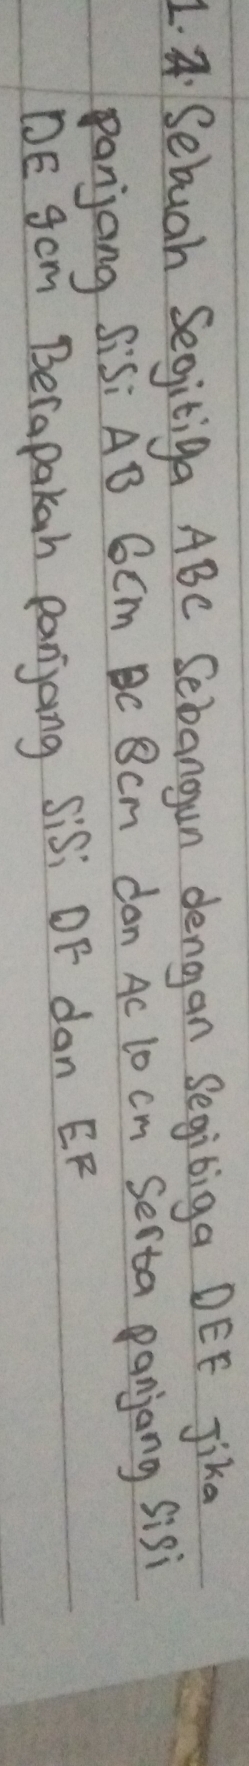 1. Sebuah Segitiga ABC Sebangun dengan Segitiga DEF Jika
panjang sisi AB 6cm BC 8cm dan AC 10 cm Serta panjang sisi
DE 9cm Berapakah panjang sisi DF dan EF